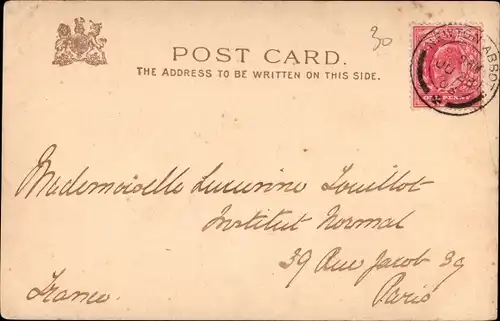 30
POST CARD.
THE ADDRESS TO BE WRITTEN ON THIS SIDE.
NEWTON ABBOT
ONE PENNY
Mademoiselle Lucienne Louillot
Institut Normal
39 Rue Jacob 39
Paris
France.